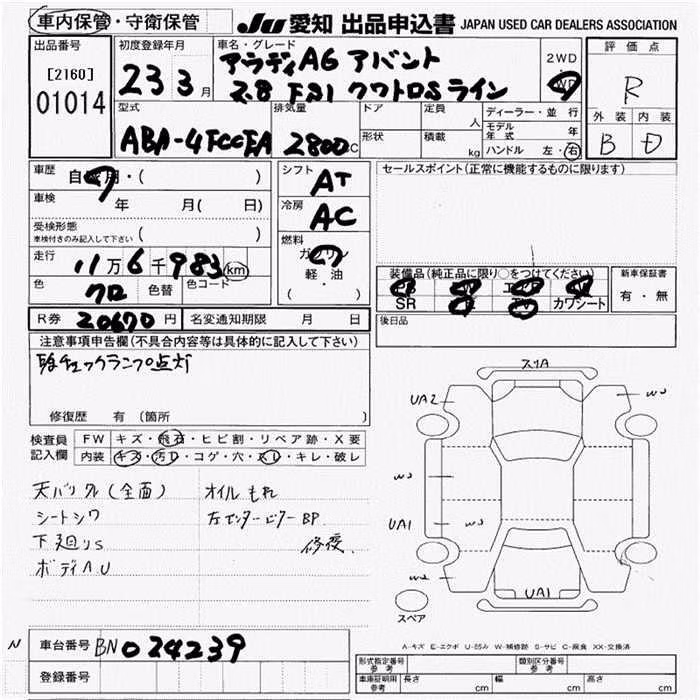 車内保管・守衛保管 JU 愛知 出品申込書 JAPAN USED CAR DEALERS ASSOCIATION
出品番号 初度登録年月 車名・グレード 評価点
[2160] 23 3月 アウディA6 アバント 2WD・
01014 2.8 FSI クワトロSライン R
型式 排気量 ドア 定員 人 ディーラー・並行 外装 内装
ABA-4FCCEA 2800CC 形状 積載 kg モデル年式 年 B D
ハンドル 左・右
車歴 自家用・( ) シフト AT セールスポイント(正常に機能するものに限ります)
車検 年 月( 日) 冷房 AC
受検形態 ( )
車検付きのみ記入して下さい
燃料 ガソリン
走行 11万6千983km 軽油
( ・ )
色 クロ 色替 色コード
装備品(純正品に限り○をつけてください) 新車保証書
SR TV カワシート 有・無
R券 20670円 名変通知期限 月 日 後日品
注意事項申告欄(不具合内容等は具体的に記入して下さい)
チェックランプ点灯
修復歴 有(箇所 )
検査員 FW キズ・飛石・ヒビ割・リペア跡・X要
記入欄 内装 キズ・汚レ・コゲ・穴・スレ・キレ・破レ
天バリ (全面) オイルもれ
シートシワ 左センターピラーBP
下廻りS 修復
ボディAU
スリA
UA2
W3
W3
UA1
W3
W2
UA1
スペア
A-キズ E-エクボ U-凹み W-補修跡 S-サビ C-腐食 XX-交換済
N 車台番号 BN024239
登録番号
形式指定番号 参考 類別区分番号 参考
車庫証明用 参考 長さ cm 幅 cm 高さ cm